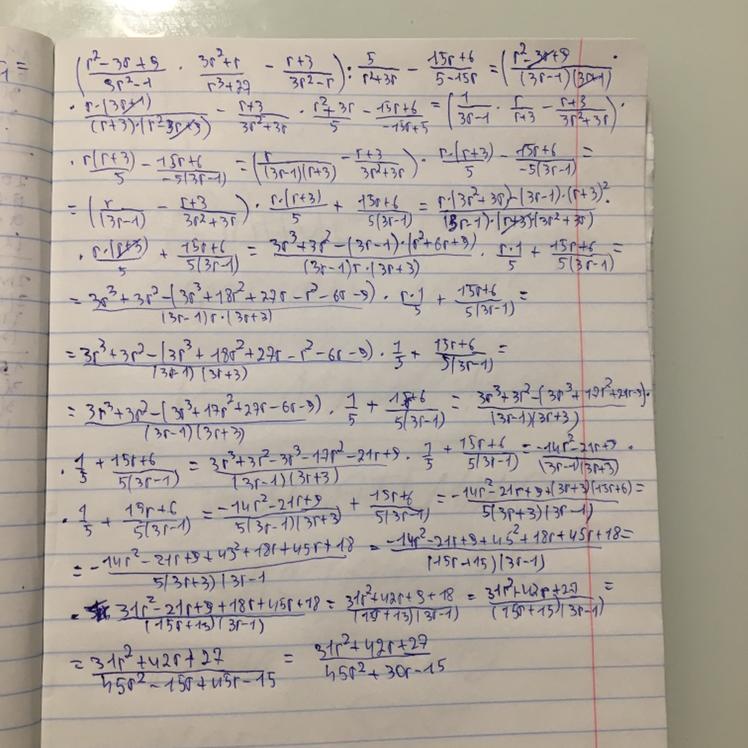 ( (r²-3r+9)/(9r²-1) · (3r²+r)/(r³+27) - (r+3)/(3r²-r) ) : 5/(r²+3r) - (15r+6)/(5-15r) = ( (r²-3r+9)/((3r-1)(3r+1)) ·
· (r·(3r+1))/((r+3)·(r²-3r+9)) - (r+3)/(3r²+3r) · (r²+3r)/5 - (15r+6)/(-15r+5) = ( 1/(3r-1) · r/(r+3) - (r+3)/(3r²+3r) ) ·
· r(r+3)/5 - (15r+6)/(-5(3r-1)) = ( r/((3r-1)(r+3)) - (r+3)/(3r²+3r) ) · r·(r+3)/5 - (15r+6)/(-5(3r-1)) =
= ( r/(3r-1) - (r+3)/(3r²+3r) ) · r·(r+3)/5 + (15r+6)/(5(3r-1)) = (r·(3r²+3r)-(3r-1)·(r+3)²)/((3r-1)·(r+3)·(3r²+3r)) ·
· r·(r+3)/5 + (15r+6)/(5(3r-1)) = (3r³+3r²-(3r-1)·(r²+6r+9))/((3r-1)r·(3r+3)) · r·1/5 + (15r+6)/(5(3r-1)) =
= (3r³+3r²-(3r³+18r²+27r-r²-6r-9))/((3r-1)r·(3r+3)) · r·1/5 + (15r+6)/(5(3r-1)) =
= (3r³+3r²-(3r³+18r²+27r-r²-6r-9))/((3r-1)(3r+3)) · 1/5 + (15r+6)/(5(3r-1)) =
= (3r³+3r²-(3r³+17r²+27r-6r-9))/((3r-1)(3r+3)) · 1/5 + (15r+6)/(5(3r-1)) = (3r³+3r²-(3r³+17r²+21r-9))/((3r-1)(3r+3)) ·
· 1/5 + (15r+6)/(5(3r-1)) = (3r³+3r²-3r³-17r²-21r+9)/((3r-1)(3r+3)) · 1/5 + (15r+6)/(5(3r-1)) = (-14r²-21r+9)/((3r-1)(3r+3)) ·
· 1/5 + (15r+6)/(5(3r-1)) = (-14r²-21r+9)/(5(3r-1)(3r+3)) + (15r+6)/(5(3r-1)) = (-14r²-21r+9+(3r+3)(15r+6))/(5(3r+3)(3r-1)) =
= (-14r²-21r+9+45²+18r+45r+18)/(5(3r+3)(3r-1) = (-14r²-21r+9+45²+18r+45r+18)/((15r+15)(3r-1) =
· (31r²-21r+9+18r+45r+18)/((15r+15)(3r-1) = (31r²+42r+9+18)/((15r+15)(3r-1) = (31r²+42r+27)/((15r+15)(3r-1) =
= (31r²+42r+27)/(45r²-15r+45r-15) = (31r²+42r+27)/(45r²+30r-15)